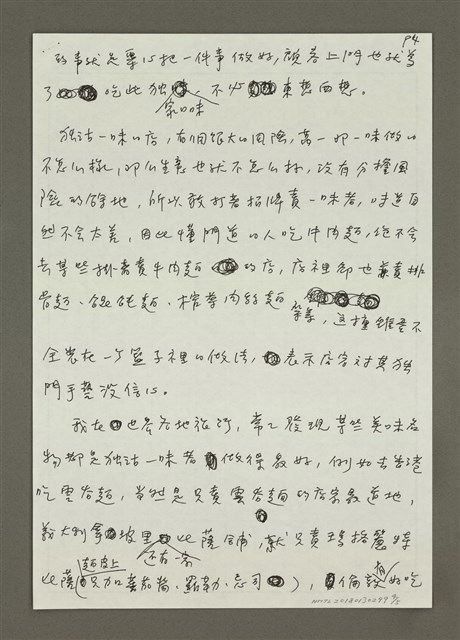 P4
的事就是要心把一件事做好,顧客上門也就為
了吃此獨家口味,不必東想西想。
獨沽一味的店,有個很大的風險,萬一那一味做的
不怎么樣,那么生意也就不怎么好,沒有分擔風
險的餘地,所以敢打著招牌賣一味者,味道自
然不會太差,因此懂門道的人吃牛肉麵,絕不會
去某些掛著賣牛肉麵的店,店裡卻也兼賣排
骨麵、餛飩麵、榨菜肉絲麵等等,這種雞蛋不
全放在一个籃子裡的做法,表示店家對其獨
門手藝沒信心。
我在世界各地旅行,常常發現某些美味食
物都是獨沽一味者做得最好,例如去香港
吃雲吞麵,當然是只賣雲吞麵的店家最道地,
義大利拿坡里還有一家比薩舖,就只賣瑪格麗特
比薩(麵皮上只加蕃茄醬、羅勒、忌司),倫敦有好吃
NMTL20180130299